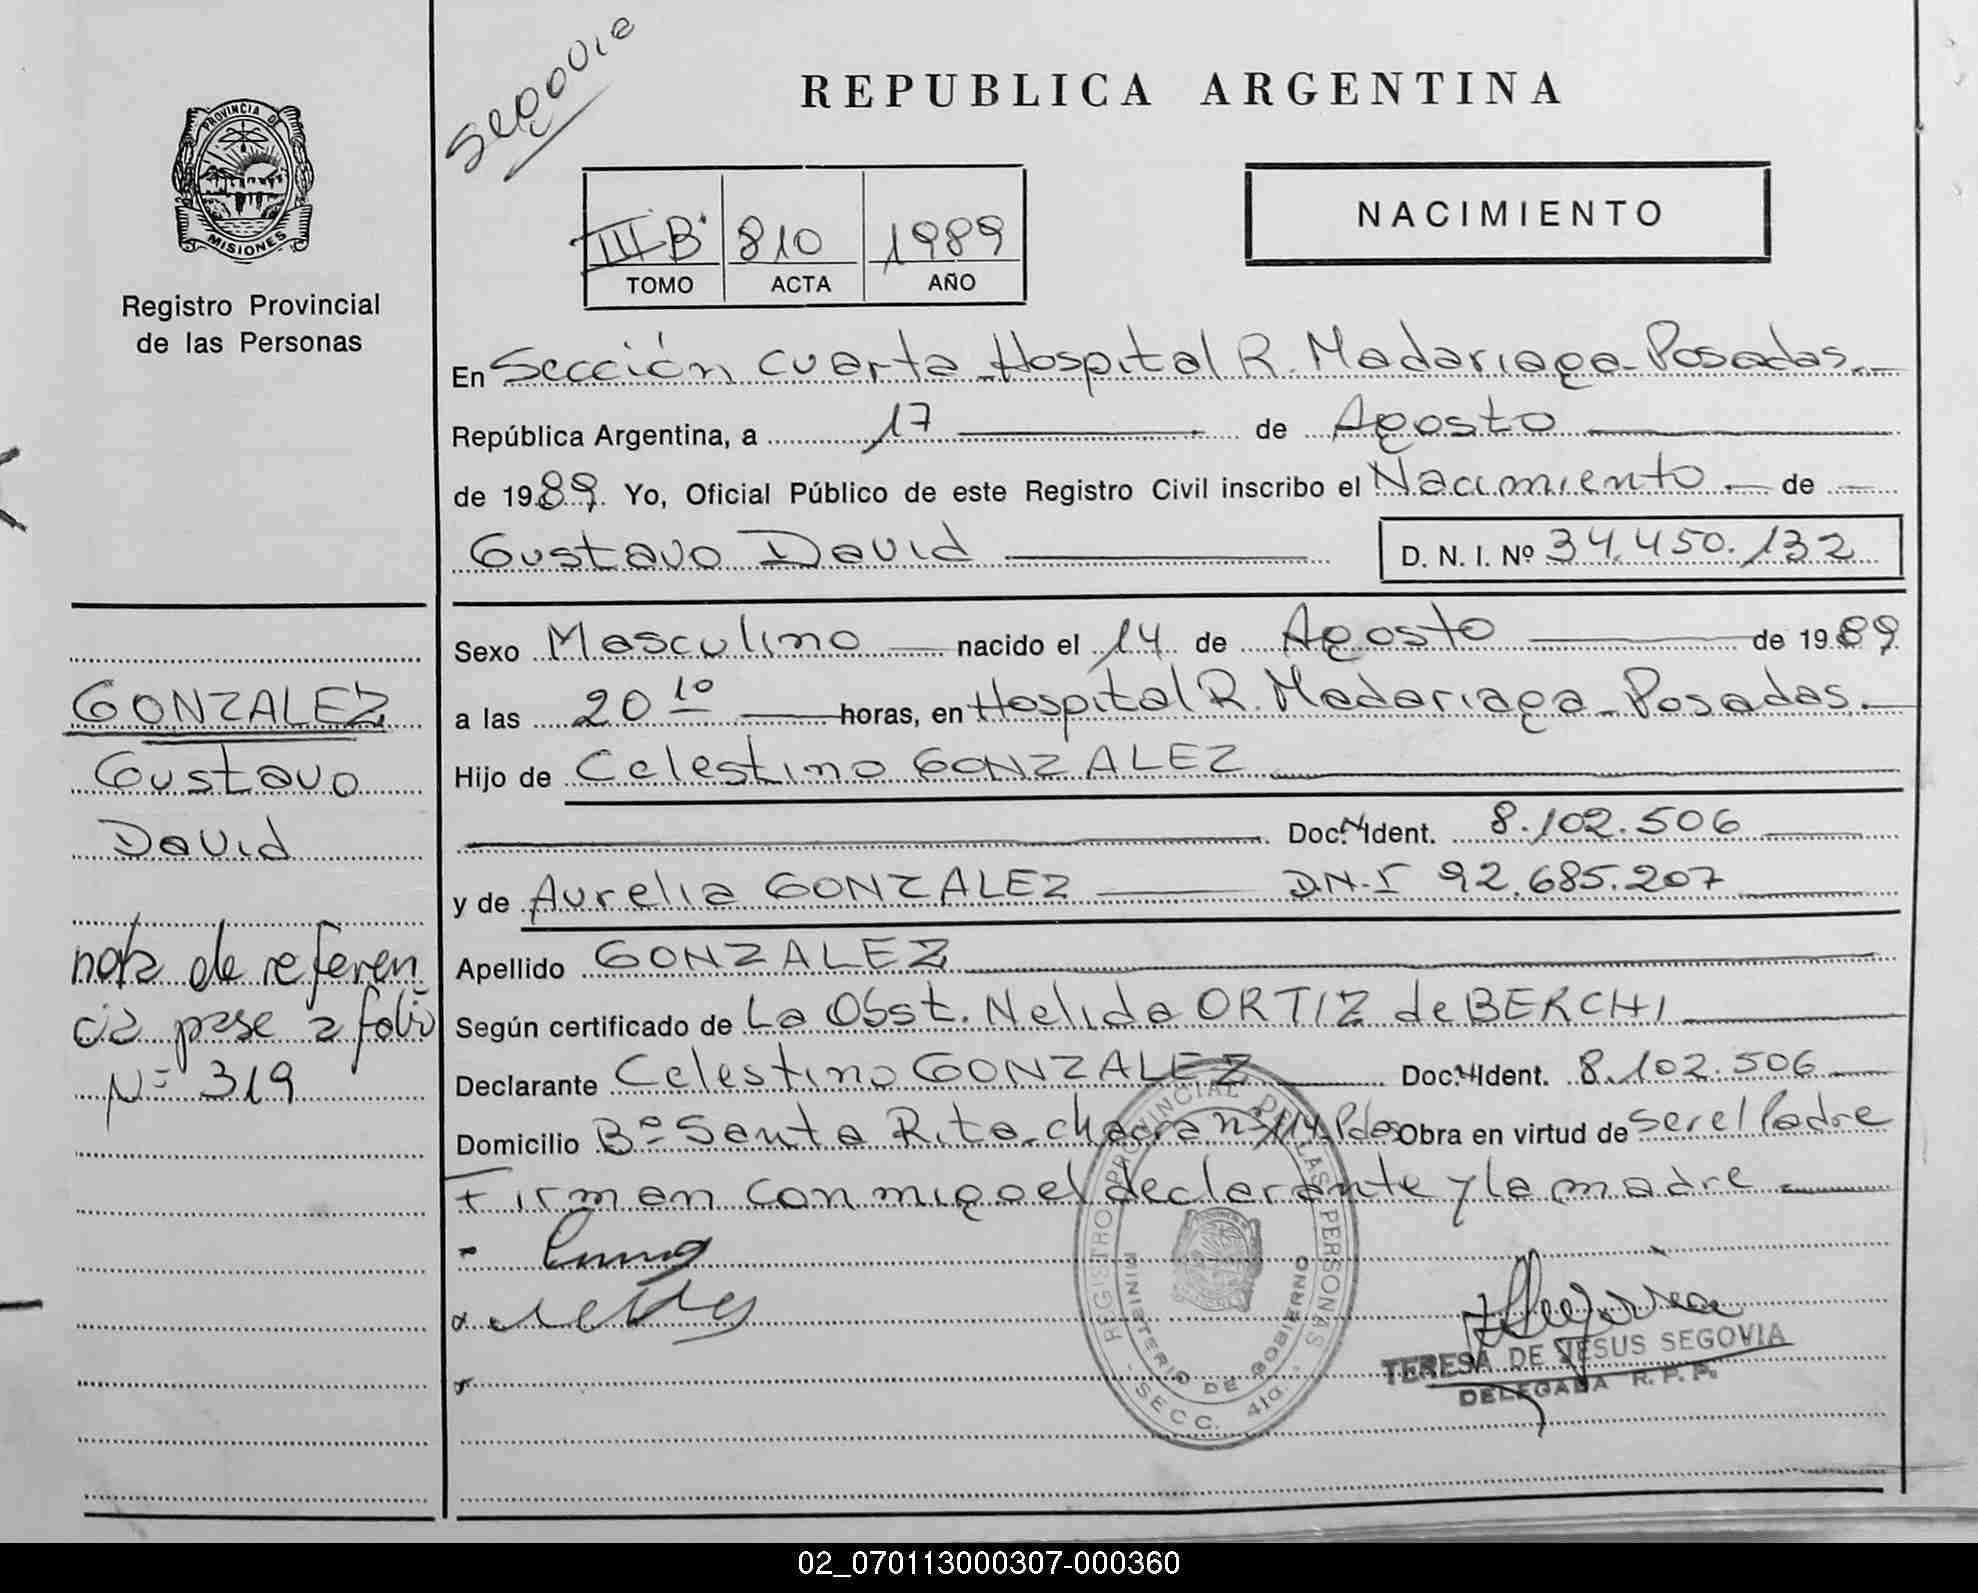 Segovia
REPUBLICA ARGENTINA
PROVINCIA DE
MISIONES
Registro Provincial
de las Personas
NACIMIENTO
III B 810 1989
TOMO ACTA AÑO
En Sección cuarta Hospital R. Madariaga - Posadas.-
República Argentina, a 17 de Agosto
de 1989. Yo, Oficial Público de este Registro Civil inscribo el Nacimiento de
Gustavo David D. N. I. Nº 34.450.132
Sexo Masculino nacido el 14 de Agosto de 1989
a las 20 10 horas, en Hospital R. Madariaga - Posadas.-
Hijo de Celestino GONZALEZ
Doc. N Ident. 8.102.506
y de Aurelia GONZALEZ D.N.I 92.685.207
Apellido GONZALEZ
Según certificado de La Obst. Nelida ORTIZ de BERCHI
Declarante Celestino GONZALEZ Doc. N Ident. 8.102.506
Domicilio Bº Santa Rita - chacra nº 114 - Pdas Obra en virtud de ser el Padre
Firman conmigo el declarante y la madre
GONZALEZ
Gustavo
David
nota de referen
cia pase a folio
Nº 319
REGISTRO PROVINCIAL DE LAS PERSONAS
MINISTERIO DE GOBIERNO
- SECC. 4ta. -
TERESA DE JESUS SEGOVIA
DELEGADA R. P. P.
02_070113000307-000360